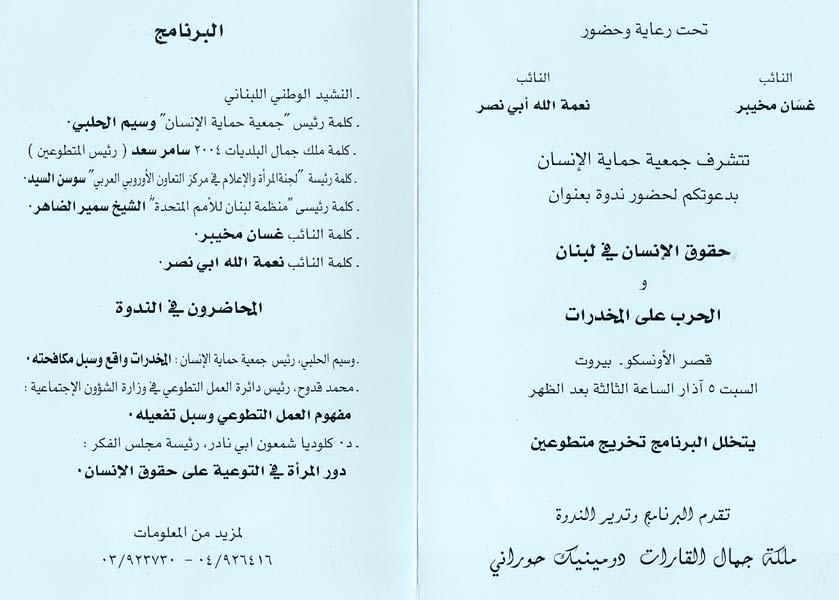 تحت رعاية وحضور
النائب
غسّان مخيبر
النائب
نعمة الله أبي نصر
تتشرف جمعية حماية الإنسان
بدعوتكم لحضور ندوة بعنوان
حقوق الإنسان في لبنان
و
الحرب على المخدرات
قصر الأونسكو. بيروت
السبت ٥ آذار الساعة الثالثة بعد الظهر
يتخلل البرنامج تخريج متطوعين
تقدم البرنامج وتدير الندوة
ملكة جمال القارات دومينيك حوراني
البرنامج
. النشيد الوطني اللبناني
. كلمة رئيس "جمعية حماية الإنسان" وسيم الحلبي.
. كلمة ملك جمال البلديات ٢٠٠٤ سامر سعد ( رئيس المتطوعين )
. كلمة رئيسة "لجنة المرأة والإعلام في مركز التعاون الأوروبي العربي" سوسن السيد.
. كلمة رئيسى "منظمة لبنان للأمم المتحدة" الشيخ سمير الضاهر.
. كلمة النائب غسان مخيبر.
. كلمة النائب نعمة الله ابي نصر.
المحاضرون في الندوة
. وسيم الحلبي، رئيس جمعية حماية الإنسان : المخدرات واقع وسبل مكافحته .
. محمد قدوح، رئيس دائرة العمل التطوعي في وزارة الشؤون الإجتماعية :
مفهوم العمل التطوعي وسبل تفعيله .
. د. كلوديا شمعون ابي نادر، رئيسة مجلس الفكر :
دور المرأة في التوعية على حقوق الإنسان .
لمزيد من المعلومات
٠٤/٩٢٦٤١٦ – ٠٣/٩٢٣٧٣٠